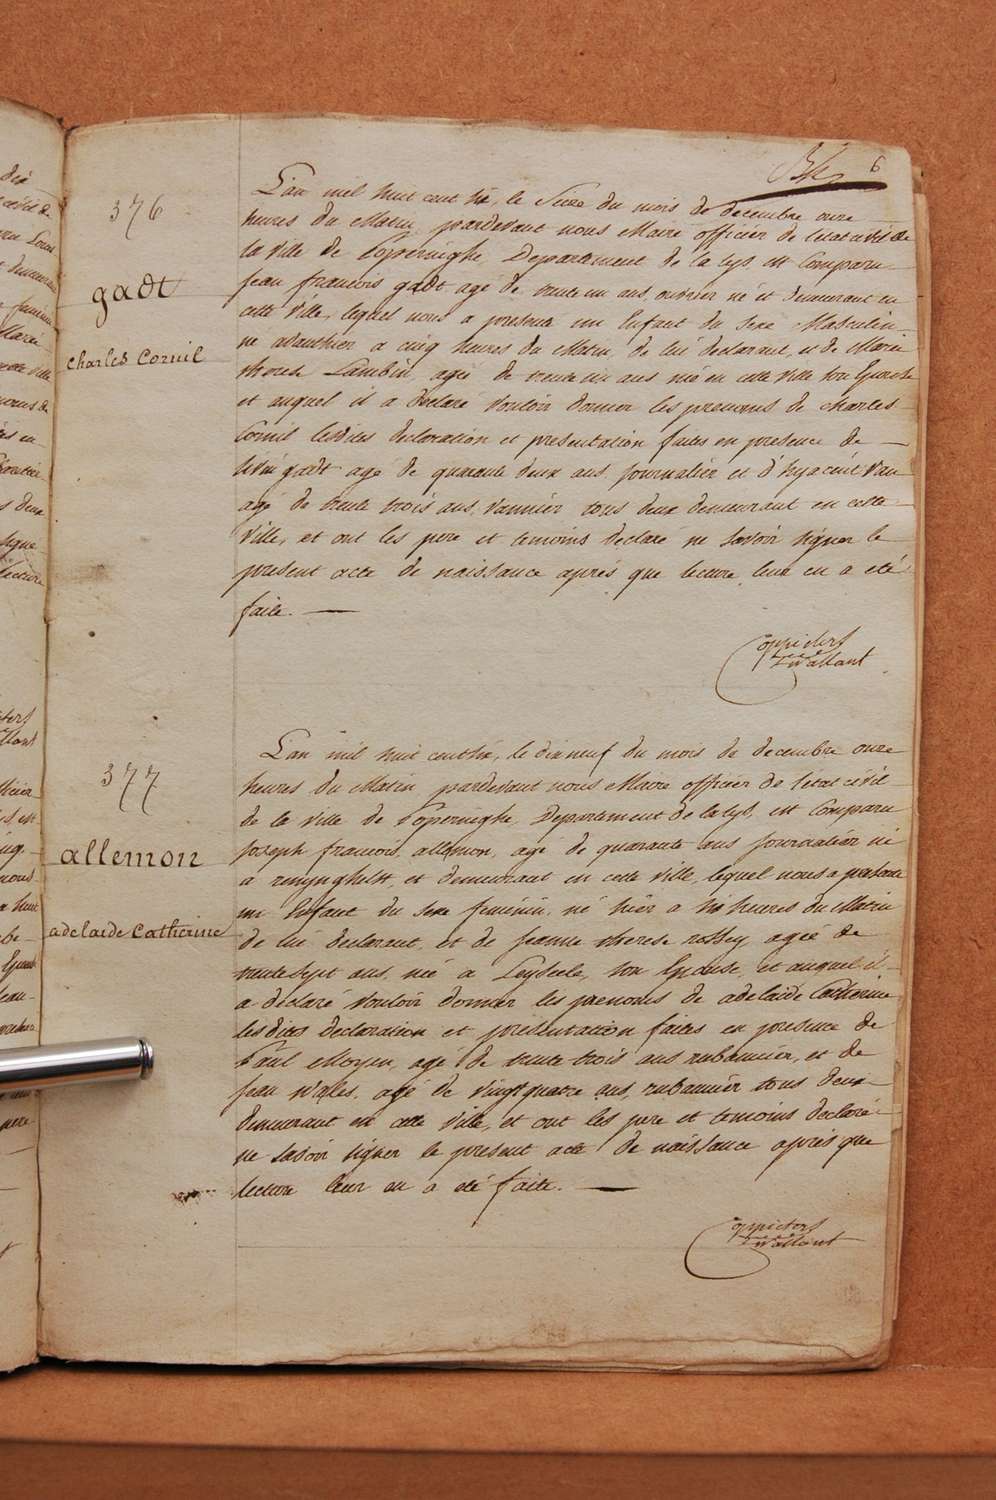 6
376
gadt
charles Cornil
L'an mil huit cent six, le Seize du mois de decembre onze
heures du Matin, pardevant nous Maire officier de l'etat civil de
la ville de Poperinghe, Departement de la Lys, est Comparu
jean francois gadt agé de trente un ans, ouvrier né et demeurant en
cette Ville, lequel nous a presenté un Enfant du sexe Masculin
né avanthier a cinq heures du Matin, de lui declarant, et de Marie
therese Lambin, agée de trente un ans née en cette ville son Epouse
et auquel il a declaré vouloir donner les prenoms de charles
Cornil lesdites declaration et presentation faites en presence de
gadt agé de quarante deux ans, journalier et d'hyacint Van
agé de trente trois ans, vannier tous deux demeurant en cette
Ville, et ont les pere et temoins declaré ne savoir signer le
present acte de naissance après que lecture leur en a été
faite.
377
allemon
adelaide Catherine
L'an mil huit cent six, le dix neuf du mois de decembre onze
heures du Matin, pardevant nous Maire officier de l'etat civil
de la ville de Poperinghe, Departement de la Lys, est Comparu
joseph francois allemon, agé de quarante ans journalier né
a renynghelst, et demeurant en cette ville, lequel nous a presenté
un Enfant du sexe feminin, né hier a six heures du Matin
de lui declarant, et de jeanne therese rossey agée de
trente sept ans, née a Leysele, son Epouse, et auquel il
a declaré vouloir donner les prenoms de adelaide Catherine
lesdites declaration et presentation faites en presence de
Paul Moyen, agé de trente trois ans rubannier, et de
jean wales, agé de vingt quatre ans, rubannier tous deux
demeurant en cette ville, et ont les pere et temoins declaré
ne savoir signer le present acte de naissance après que
lecture leur en a été faite.